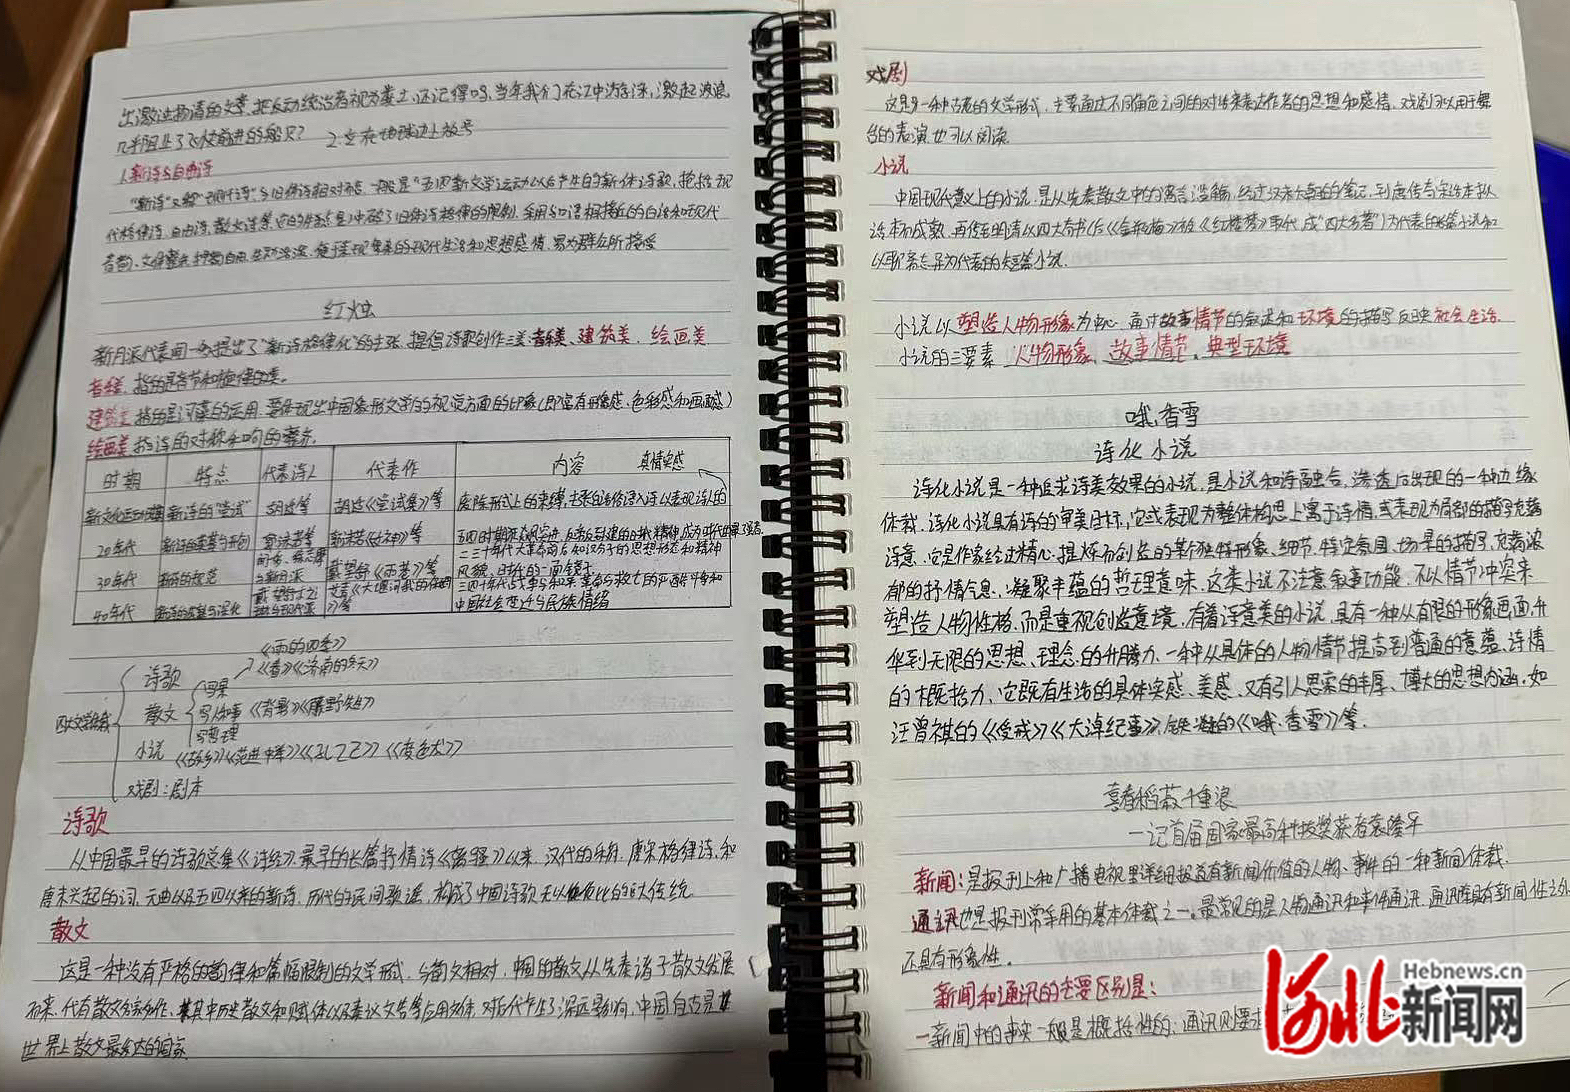 出激浊扬清的文章,把反动统治者视为粪土,还记得吗,当年我们在江中游泳,激起波浪
几乎阻止了飞快前进的船只? 2.立在地球边上放号
1.新诗与自由诗
“新诗”又称“现代诗”,与旧体诗相对而言,一般是“五四新文学运动以后产生的新体诗歌,包括现
代格律诗、自由诗、散文诗等,它的特点是冲破了旧体诗格律的限制,采用与口语相接近的白话和现代
音韵、文体
自由,生动活泼,便于表现
的现代生活和思想感情,易为群众所接受
红烛
新月派代表闻一多提出了“新诗格律化”的主张,提倡诗歌创作三美:音乐美、建筑美、绘画美
音乐美:指的是音节和旋律的美。
建筑美 指的是词藻的运用,要体现出中国象形文字的视觉方面的印象(即富有形象感、色彩感和画面感)
绘画美 指诗的对称和句的整齐.
时期 特点 代表诗人 代表作 内容 真情实感
新文化运动 新诗的“尝试” 胡适等 胡适《尝试集》等 废除形式上的束缚,主张白话俗语入诗以表现诗人的
20年代 新诗的奠基与开创 郭沫若等 郭沫若《女神》等 五四时期
精神,成为时代的
30年代 新诗的规范 闻一多、徐志摩等新月派 戴望舒《雨巷》等 二三十年代大革命前后知识分子的思想形态和精神风貌、时代的一面镜子
40年代 新诗的 与深化 艾青《大堰河我的保姆》等 三四十年代战争与和平,革命与救亡的
中国社会变迁与民族情绪
四大文学体裁
诗歌
散文
写景 《雨的四季》
《春》《济南的冬天》
写人记事《背影》《藤野先生》
写哲理
小说 《故乡》《范进中举》《孔乙己》《变色龙》
戏剧:剧本
诗歌
从中国最早的诗歌总集《诗经》,最早的长篇抒情诗《离骚》以来,汉代的乐府,唐宋格律诗,和
唐末兴起的词,元曲以及五四以来的新诗,历代的民间歌谣,构成了中国诗歌无以伦比的巨大传统
散文
这是一种没有严格的韵律和篇幅限制的文学形式,与韵文相对,中国的散文从先秦诸子散文发展
而来,代有散文名家名作,其中历史散文和赋体以及表议文告等应用文体,对后代产生了深远影响,中国自古是
世界上散文最发达的国家
戏剧
这是另一种古老的文学形式,主要通过不同角色之间的对话来表达作者的思想和感情,戏剧可以用于舞
台的表演,也可以阅读
小说
中国现代意义上的小说,是从先秦散文中的寓言滥觞,经过汉末六朝的笔记,到唐传奇宋话本拟
话本而成熟,再传至明清以四大奇书(后《金瓶梅》被《红楼梦》取代,成“四大名著”)为代表的长篇小说和
以聊斋志异为代表的短篇小说.
小说以塑造人物形象为中心,通过故事情节的叙述和环境的描写反映社会生活.
小说的三要素:人物形象、故事情节、典型环境
哦,香雪
诗化小说
诗化小说是一种追求诗美效果的小说,是小说和诗融合、渗透后出现的一种边缘
体裁.诗化小说具有诗的审美目标,它或表现为整体构思上寓于诗情,或表现为局部的描写充满
诗意.它是作家经过精心提炼而创造的某个独特形象、细节、特定氛围、场景的描写,充满浓
郁的抒情气息,凝聚丰蕴的哲理意味.这类小说不注意叙事功能,不以情节冲突来
塑造人物性格,而是重视创造意境,有着诗意美的小说,具有一种从有限的形象画面,升
华到无限的思想、理念的升腾力、一种从具体的人物情节提高到普通的意蕴、诗情
的概括力、它既有生活的具体实感、美感,又有引人思索的丰厚、博大的思想内涵,如
汪曾祺的《受戒》《大淖纪事》,铁凝的《哦,香雪》等.
喜看稻菽千重浪
—记首届国家最高科技奖获得者袁隆平
新闻:是报刊上和广播电视里详细报道有新闻价值的人物、事件的一种新闻体裁.
通讯也是报刊常采用的基本体裁之一。最常见的是人物通讯和事件通讯,通讯除具有新闻性之外
还具有形象性。
新闻和通讯的主要区别是:
一新闻中的事实一般是概括性的,通讯则要
Hebnews.cn
河北新闻网